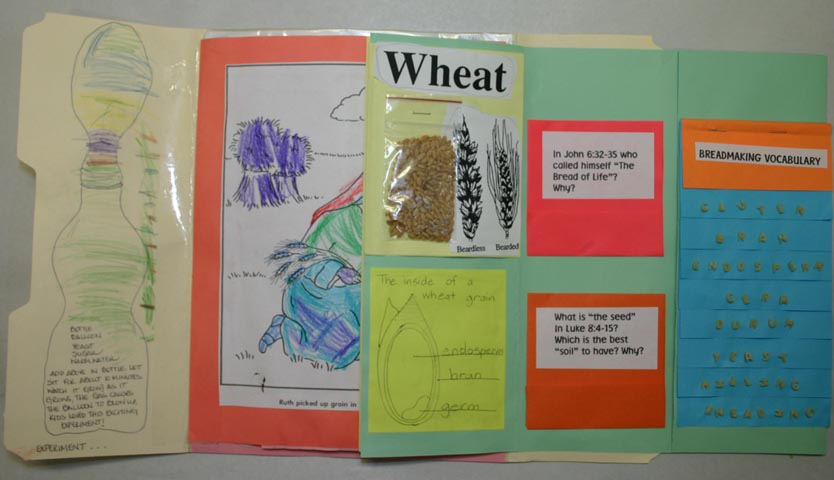 BOTTLE
BALLOON
YEAST
SUGAR
WARM WATER
ADD ABOVE IN BOTTLE. LET
SIT FOR ABOUT 10 MINUTES
WATCH IT GROW! AS IT
GROWS, THE GAS CAUSES
THE BALLOON TO BLOW UP.
KIDS LOVED THIS EXCITING
EXPERIMENT!
EXPERIMENT . . .
Ruth picked up grain in
Wheat
Beardless Bearded
The inside of a
wheat grain
endosperm
bran
germ
In John 6:32-35 who
called himself "The
Bread of Life"?
Why?
What is "the seed"
In Luke 8:4-15?
Which is the best
"soil" to have? Why?
BREADMAKING VOCABULARY
GLUTEN
BRAN
ENDOSPERM
GERM
DURUM
YEAST
MILLING
KNEADING